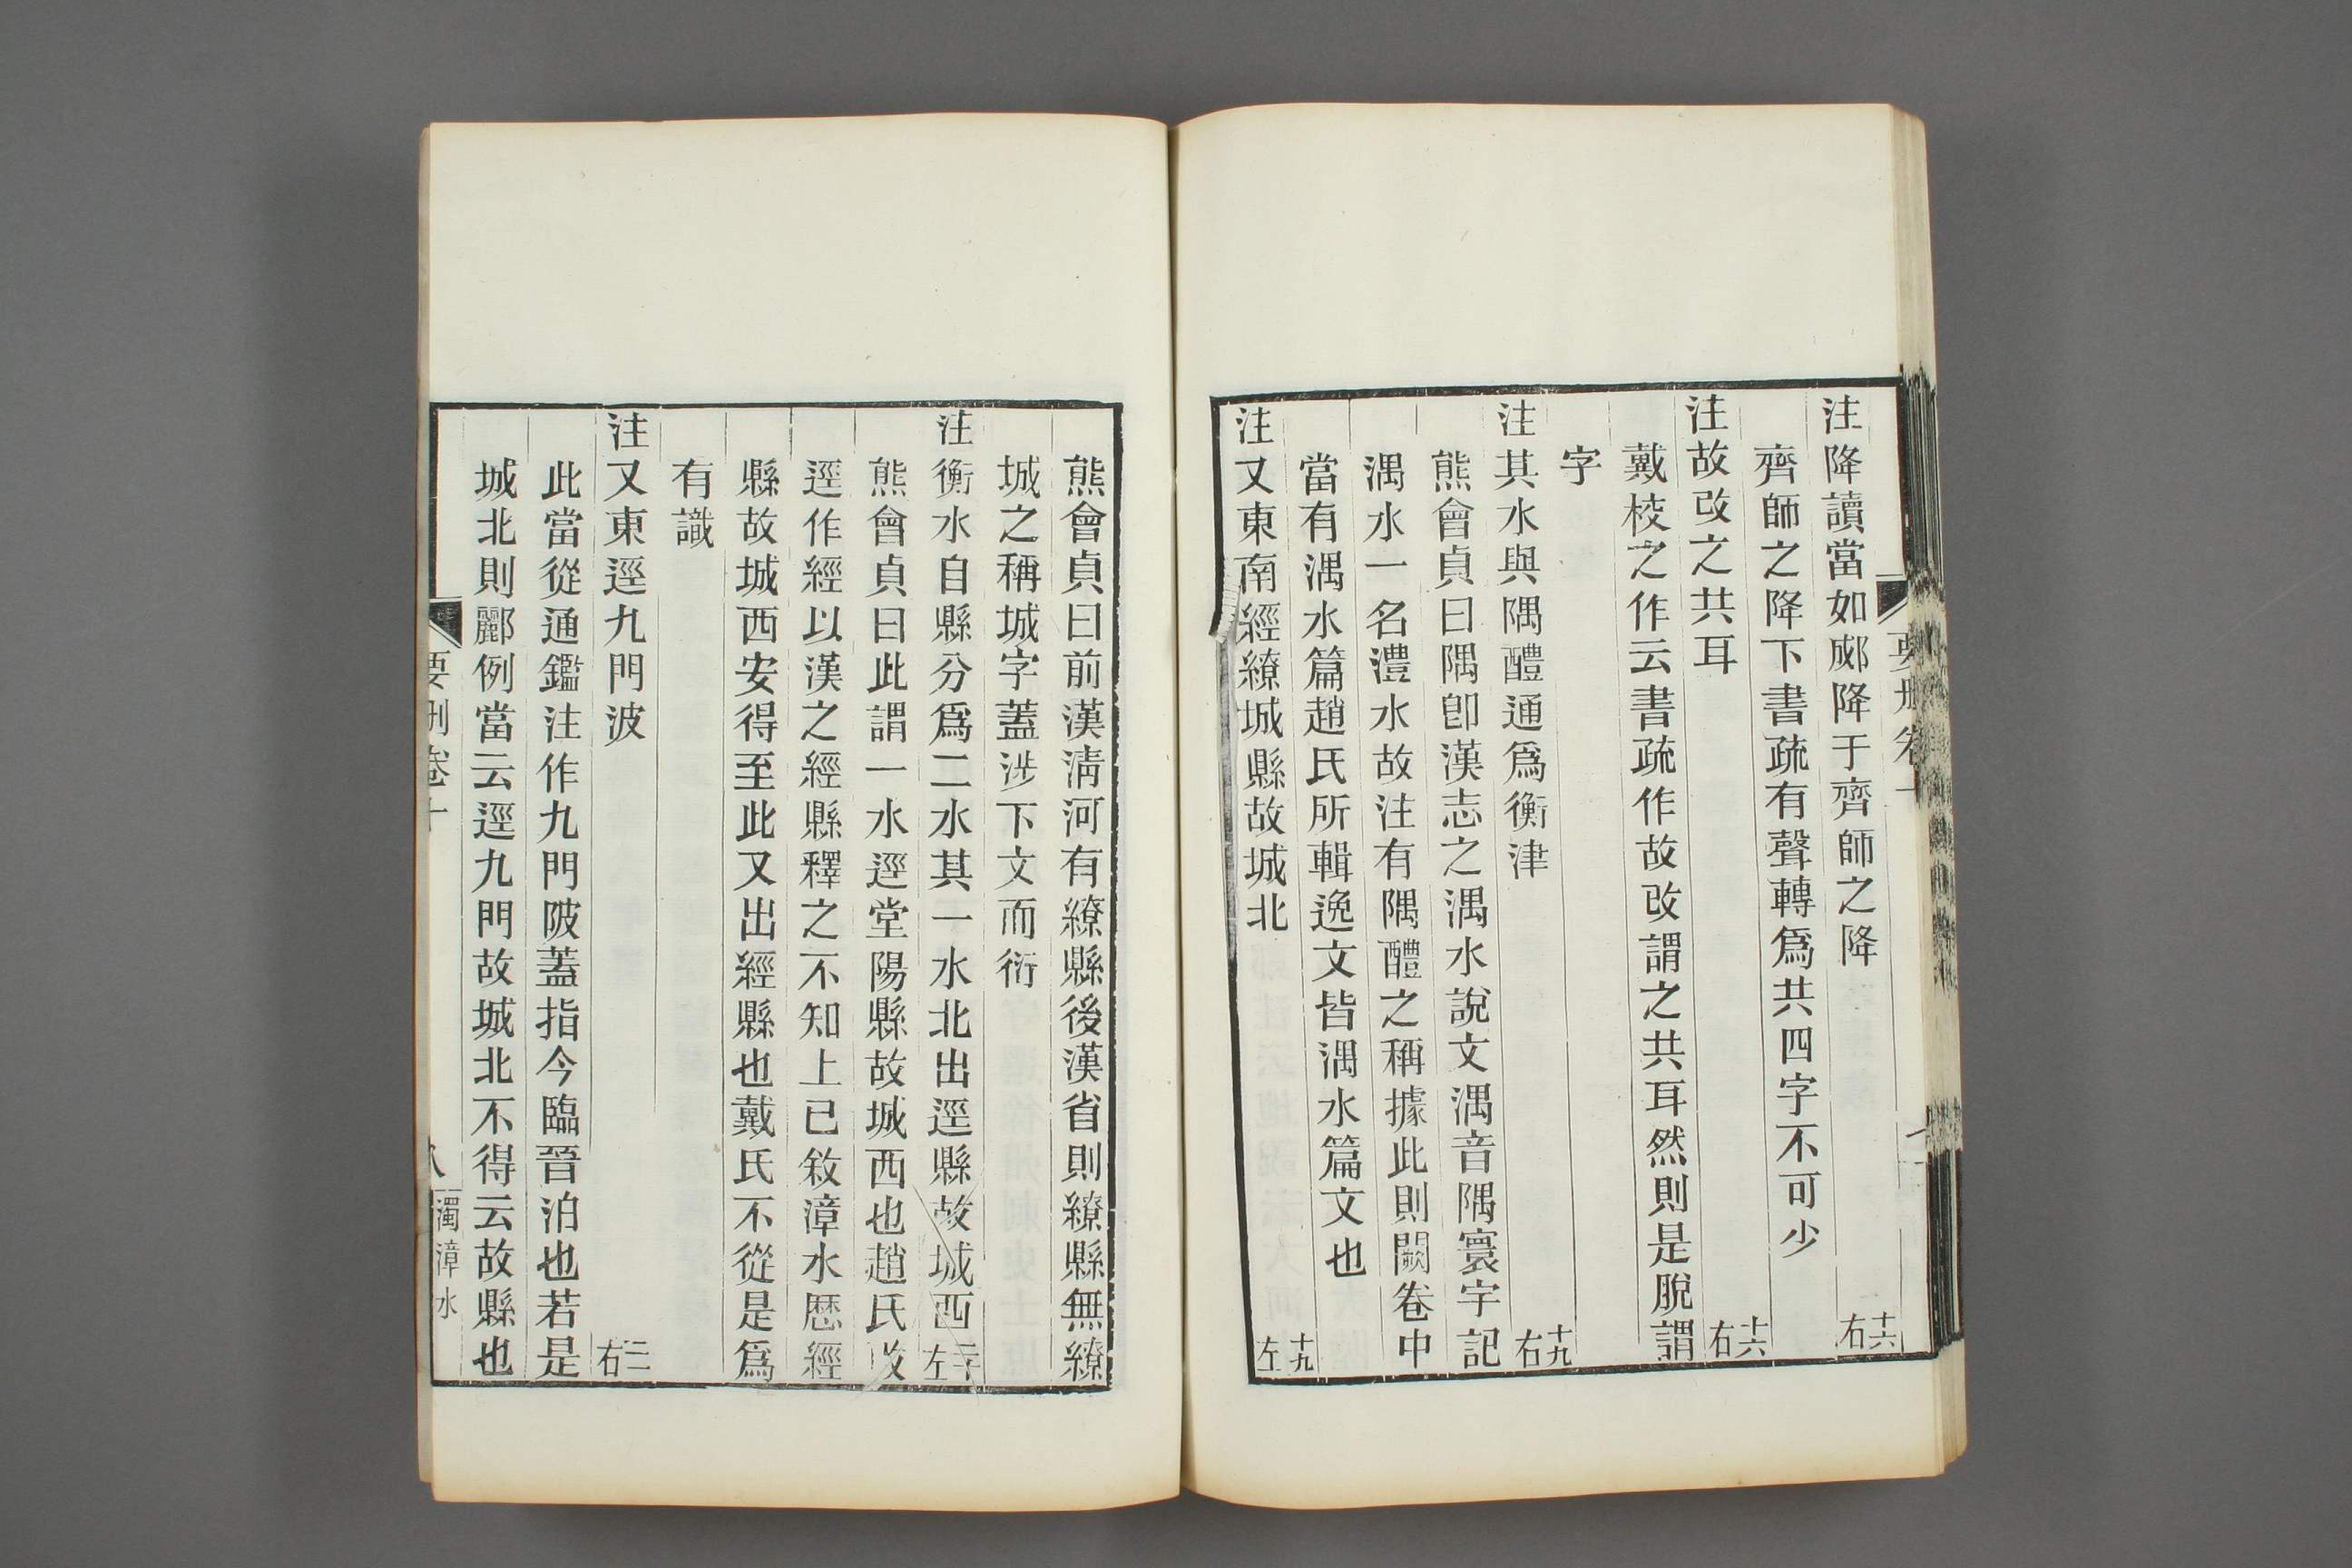 注降讀當如郕降于齊師之降 十六右
齊師之降下書疏有聲轉爲共四字不可少
注故改之共耳 十六右
戴校之作云書疏作故改謂之共耳然則是脫謂
字
注其水與隅醴通爲衡津 十九右
熊會貞曰隅卽漢志之渪水說文湡音隅寰宇記
湡水一名澧水故注有隅醴之稱據此則闕卷中
當有湡水篇趙氏所輯逸文皆湡水篇文也
注又東南經繚城縣故城北 十九左
熊會貞曰前漢淸河有繚縣後漢省則繚縣無繚
城之稱城字蓋涉下文而衍
注衡水自縣分爲二水其一水北出逕縣故城西 二十左
熊會貞曰此謂一水逕堂陽縣故城西也趙氏改
逕作經以漢之經縣釋之不知上已敘漳水歷經
縣故城西安得至此又出經縣也戴氏不從是爲
有識
注又東逕九門波 二二右
此當從通鑑注作九門陂蓋指今臨晉泊也若是
城北則酈例當云逕九門故城北不得云故縣也
要刪卷十
八 濁漳水